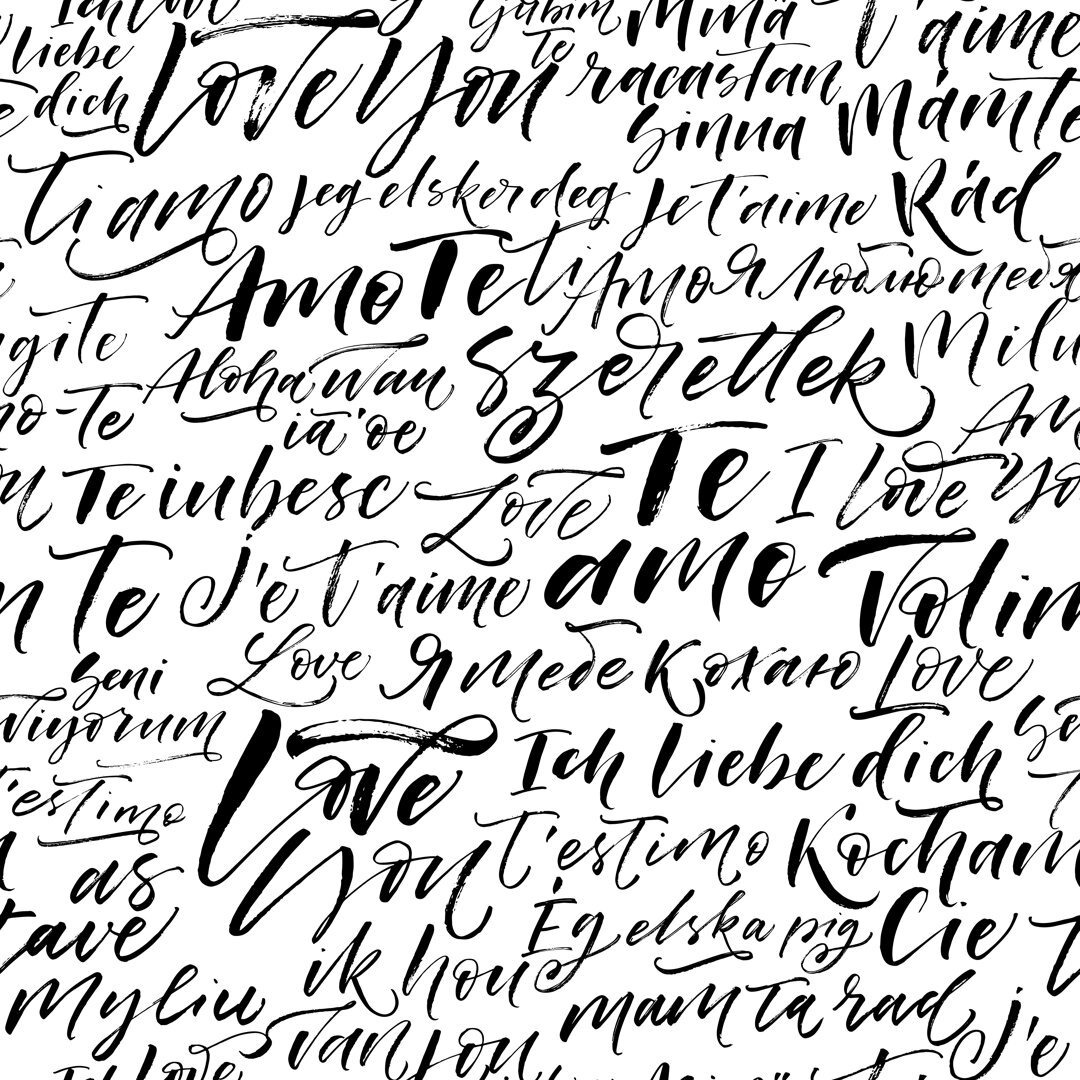 Gubim
te
Minä
racastan
Sinua
t'aime
liebe
dich
Love You
Mámte
Rád
Ti amo
Jeg elsker deg
Je t'aime
Amo Te
ti Amo
Я люблю тебя
Milu
Aloha wau
iā 'oe
Szeretlek
Te iubesc
Love
Te
amo
I love
Te
J'e t'aime
Volim
Love
Я тебе кохаю
Love
Seni
t'estimo
Love
you
Ich liebe dich
T'estimo
Kocham
Cie
as
tave
myliu
Ég elska þig
ik hou
van jou
mam ta rad
j'e
Love